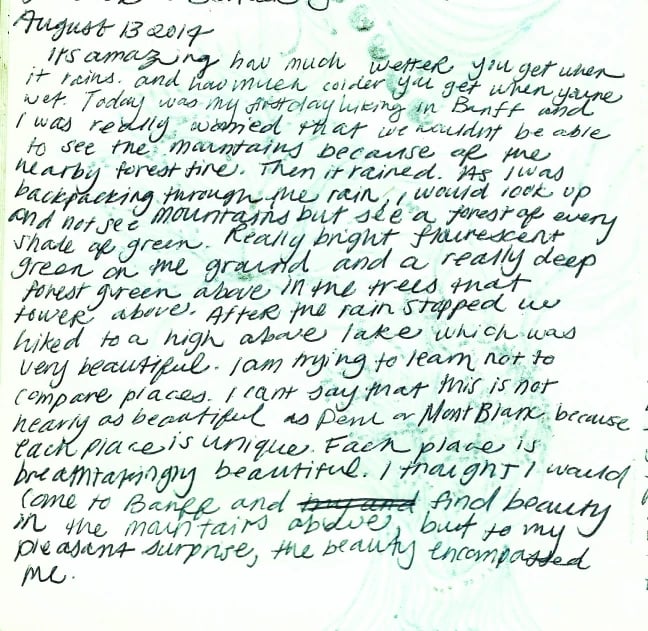 August 13 2014
Its amazing how much wetter you get when
it rains. and how much colder you get when you're
wet. Today was my first day hiking in Banff and
I was really worried that we wouldnt be able
to see the mountains because of the
nearby forest fire. Then it rained. As I was
backpacking through the rain, I would look up
and not see mountains but see a forest of every
shade of green. Really bright flourescent
green on the ground and a really deep
forest green above in the trees that
tower above. After the rain stopped we
hiked to a high above lake which was
very beautiful. I am trying to learn not to
compare places. I cant say that this is not
nearly as beautiful as Peru or Mont Blanc because
each place is unique. Each place is
breathtakingly beautiful. I thought I would
come to Banff and find beauty
in the mountains above, but to my
pleasant surprise, the beauty encompassed
me.